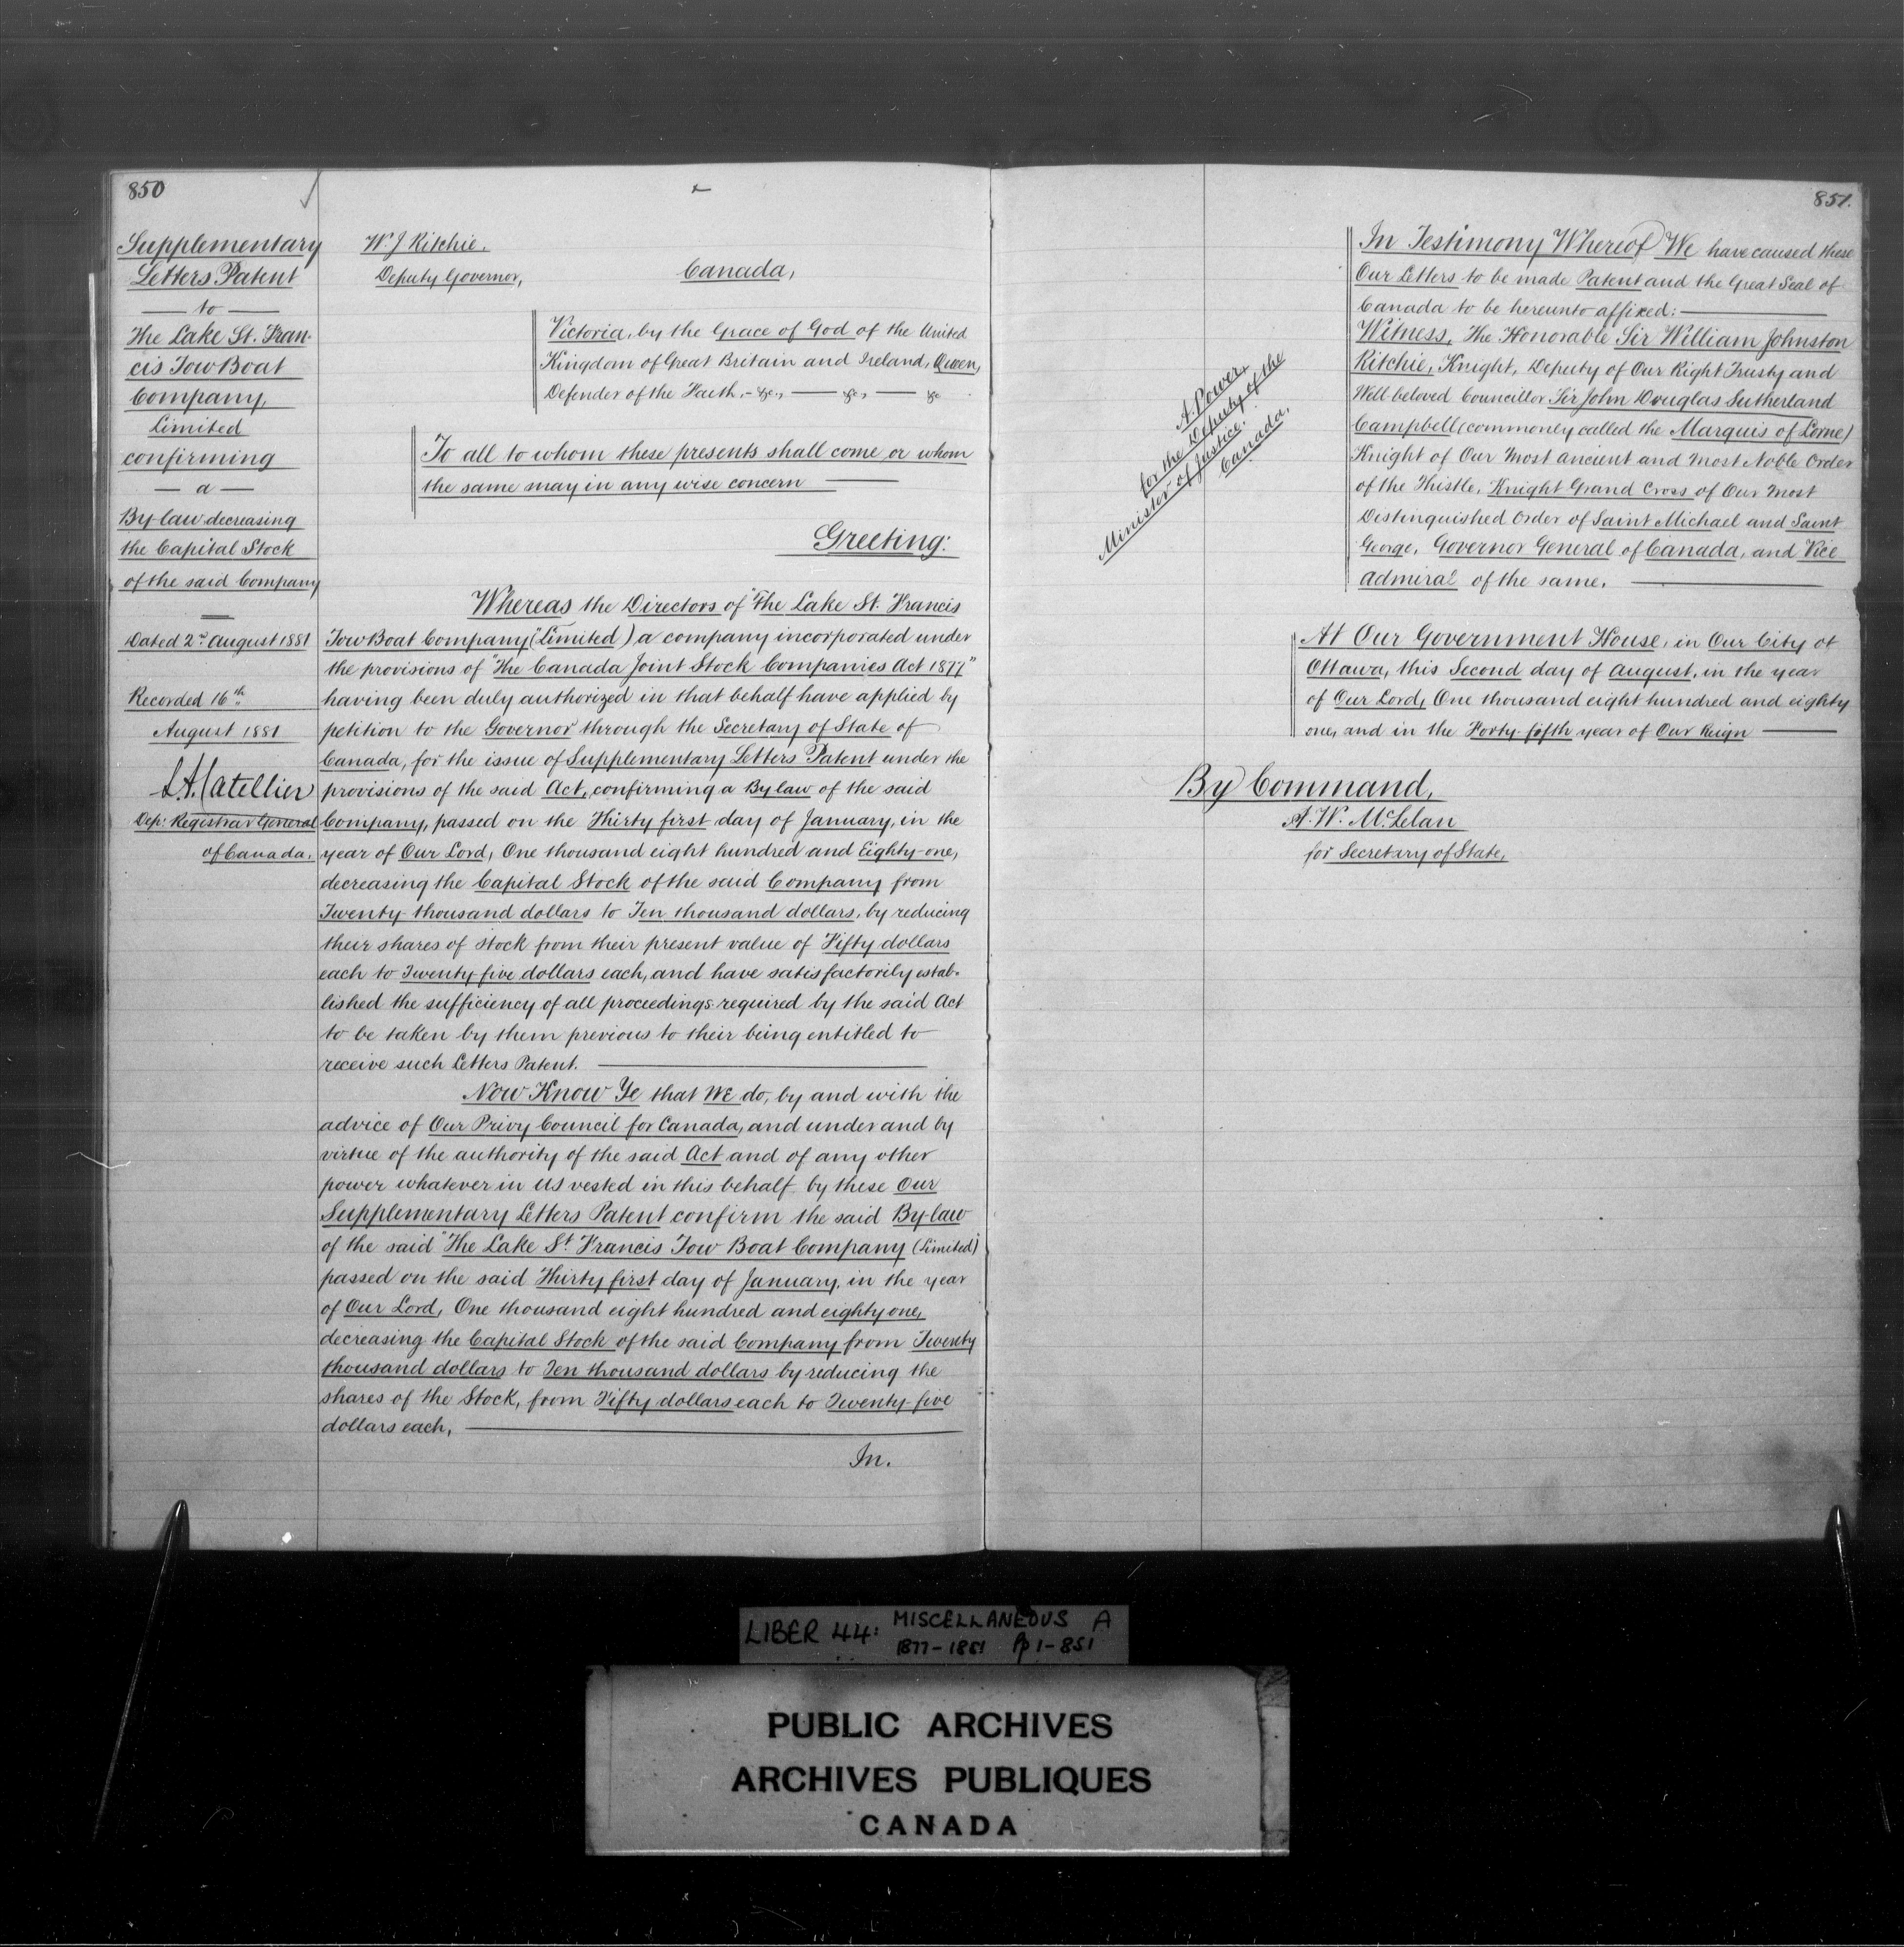 850
Supplementary
Letters Patent
to
The Lake St. Fran-
cis Tow Boat
Company,
Limited
confirming
a
By-law decreasing
the Capital Stock
of the said Company
Dated 2nd August 1881
Recorded 16th
August 1881
L.A. Catellier
Dep: Registrar General
of Canada.
W. J Ritchie.
Deputy Governor,
Canada,
Victoria, by the Grace of God of the United
Kingdom of Great Britain and Ireland, Queen,
Defender of the Faith, - &c., — &c, — &c
To all to whom these presents shall come or whom
the same may in any wise concern —
Greeting:
Whereas the Directors of "The Lake St. Francis
Tow Boat Company" (Limited) a company incorporated under
the provisions of "The Canada Joint Stock Companies Act 1877"
having been duly authorized in that behalf have applied by
petition to the Governor through the Secretary of State of
Canada, for the issue of Supplementary Letters Patent under the
provisions of the said Act, confirming a By law of the said
Company, passed on the Thirty first day of January, in the
year of Our Lord, One thousand eight hundred and Eighty-one,
decreasing the Capital Stock of the said Company from
Twenty thousand dollars to Ten thousand dollars, by reducing
their shares of stock from their present value of Fifty dollars
each to Twenty-five dollars each, and have satisfactorily estab-
lished the sufficiency of all proceedings required by the said Act
to be taken by them previous to their being entitled to
receive such Letters Patent. —
Now Know Ye that We do, by and with the
advice of Our Privy Council for Canada, and under and by
virtue of the authority of the said Act and of any other
power whatever in Us vested in this behalf by these Our
Supplementary Letters Patent confirm the said By-law
of the said "The Lake St. Francis Tow Boat Company (Limited)"
passed on the said Thirty first day of January, in the year
of Our Lord, One thousand eight hundred and eighty one,
decreasing the Capital Stock of the said Company from Twenty
thousand dollars to Ten thousand dollars by reducing the
shares of the Stock, from Fifty dollars each to Twenty-five
dollars each, —
In.
851.
A. Power,
for the Deputy of the
Minister of Justice.
Canada,
In Testimony Whereof We have caused these
Our Letters to be made Patent and the Great Seal of
Canada to be hereunto affixed: —
Witness, The Honorable Sir William Johnston
Ritchie, Knight, Deputy of Our Right Trusty and
Well-beloved Councillor Sir John Douglas Sutherland
Campbell (commonly called the Marquis of Lorne)
Knight of Our Most Ancient and Most Noble Order
of the Thistle, Knight Grand Cross of Our Most
Distinguished Order of Saint Michael and Saint
George, Governor General of Canada, and Vice
Admiral of the same. —
At Our Government House, in Our City of
Ottawa, this Second day of August, in the year
of Our Lord, One thousand eight hundred and eighty
one, and in the Forty-fifth year of Our Reign —
By Command,
A. W. McLelan
for Secretary of State,
LIBER 44: MISCELLANEOUS A
1877-1881 Pp 1-851
PUBLIC ARCHIVES
ARCHIVES PUBLIQUES
CANADA